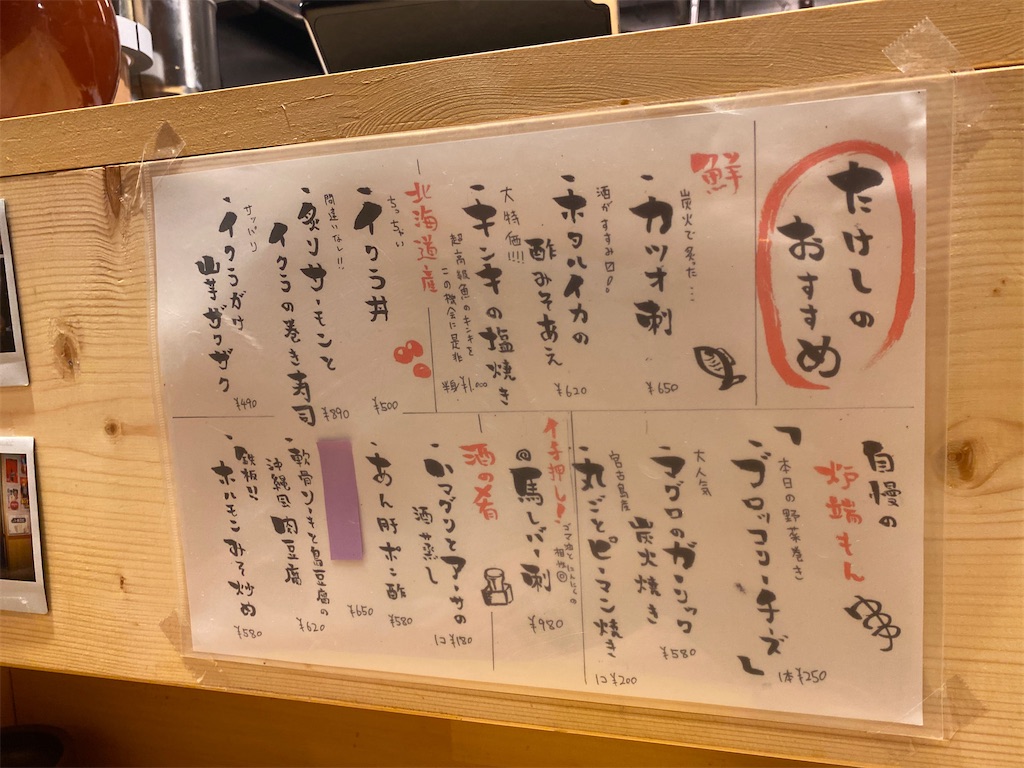 たけしの
おすすめ
鮮
炭火で炙った…
・カツオ刺
¥650
酒がすすみ〼。
・ホタルイカの
酢みそあえ
¥620
大特価!!!!
・キンキの塩焼き
超高級魚のキンキを
この機会に是非
半身 ¥1,000
北海道産
ちっちゃい
・イクラ丼
¥500
間違いなし!!
・炙りサーモンと
イクラの巻き寿司
¥890
サッパリ
・イクラがけ
山芋ザクザク
¥490
自慢の
炉端もん
本日の野菜巻き
「ブロッコリーチーズ」
1本¥250
大人気
・マグロのガーリック
炭火焼き
¥580
宮古島産
・丸ごとピーマン焼き
1コ¥200
イチ押し!
ゴマ油とにんにくの
相性◎
◎馬レバー刺
¥980
酒の肴
・ハマグリとアーサの
酒蒸し
1コ¥180
・あん肝ポン酢
¥580
¥650
・軟骨ソーキと島豆腐の
沖縄風肉豆腐
¥620
鉄板!!
・ホルモンみそ炒め
¥580